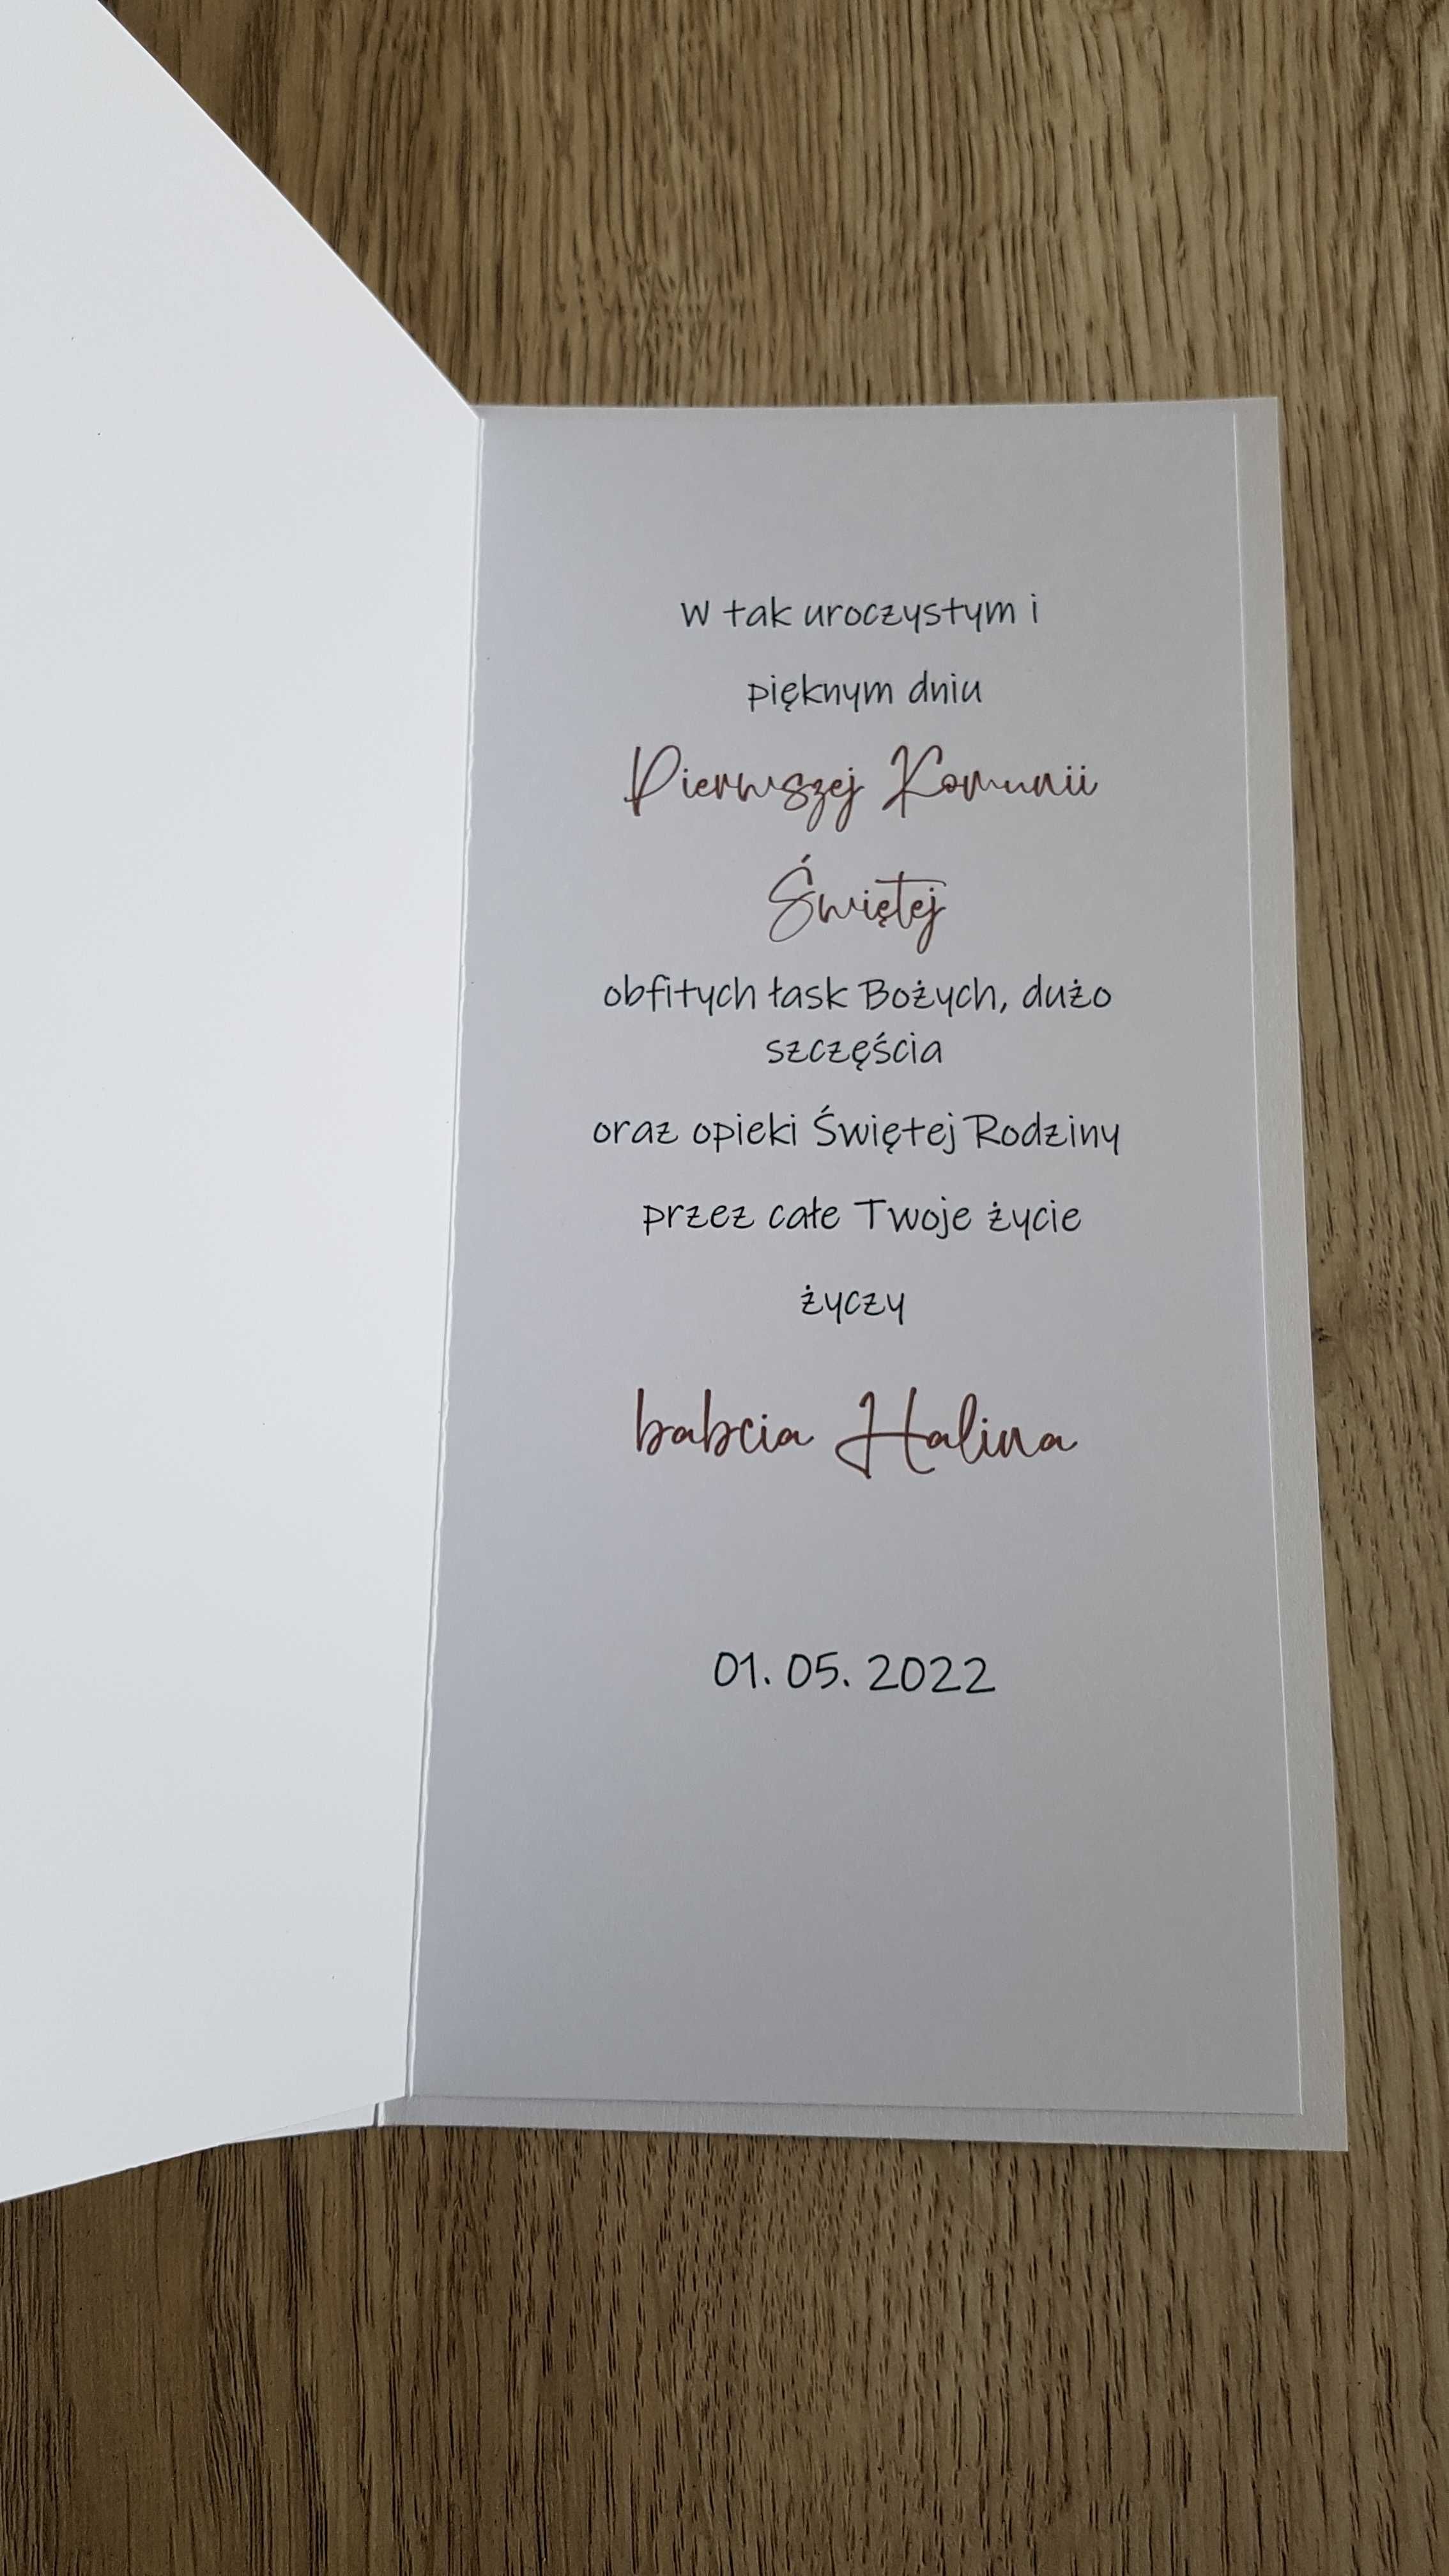 W tak uroczystym i
pięknym dniu
Pierwszej Komunii
Świętej
obfitych łask Bożych, dużo
szczęścia
oraz opieki Świętej Rodziny
przez całe Twoje życie
życzy
babcia Halina
01. 05. 2022